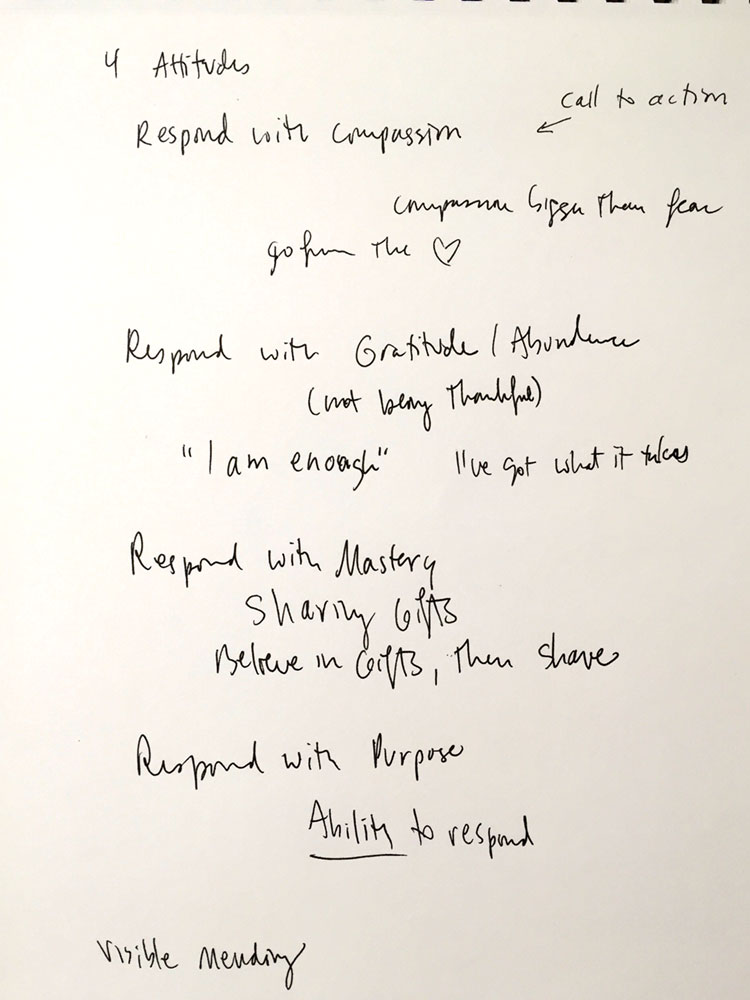 4 Attitudes
call to action
Respond with Compassion
compassion bigger than fear
go from the ♡
Respond with Gratitude / Abundence
(not being thankful)
"I am enough" I've got what it takes
Respond with Mastery
Sharing Gifts
Believe in Gifts, then share
Respond with Purpose
Ability to respond
Visible Mending